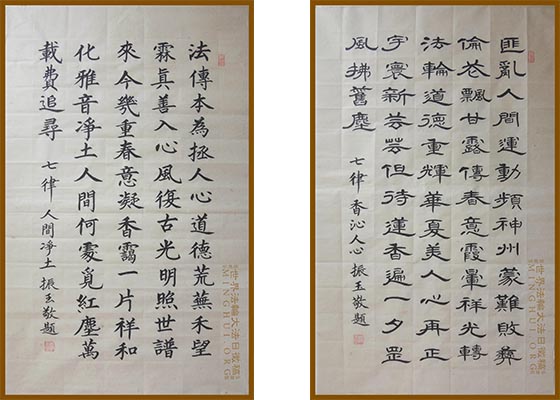 法傳本為拯人心道德荒蕪禾望
霖眞善入心風復古光明照世譜
來今幾重春意凝香靄一片祥和
化雅音凈土人間何處覓紅塵萬
載費追尋
七律 人間凈土 振玉敬題
世界法輪大法日徵稿
MINGHUI.ORG
匪亂人間運動頻神州蒙難敗彝
倫花飄甘露傳春意霞暈祥光轉
法輪道德重輝華夏美人心再正
宇寰新芸芸但待蓮香遍一夕罡
風拂舊塵
七律 香沁人心 振玉敬題
世界法輪大法日徵稿
MINGHUI.ORG